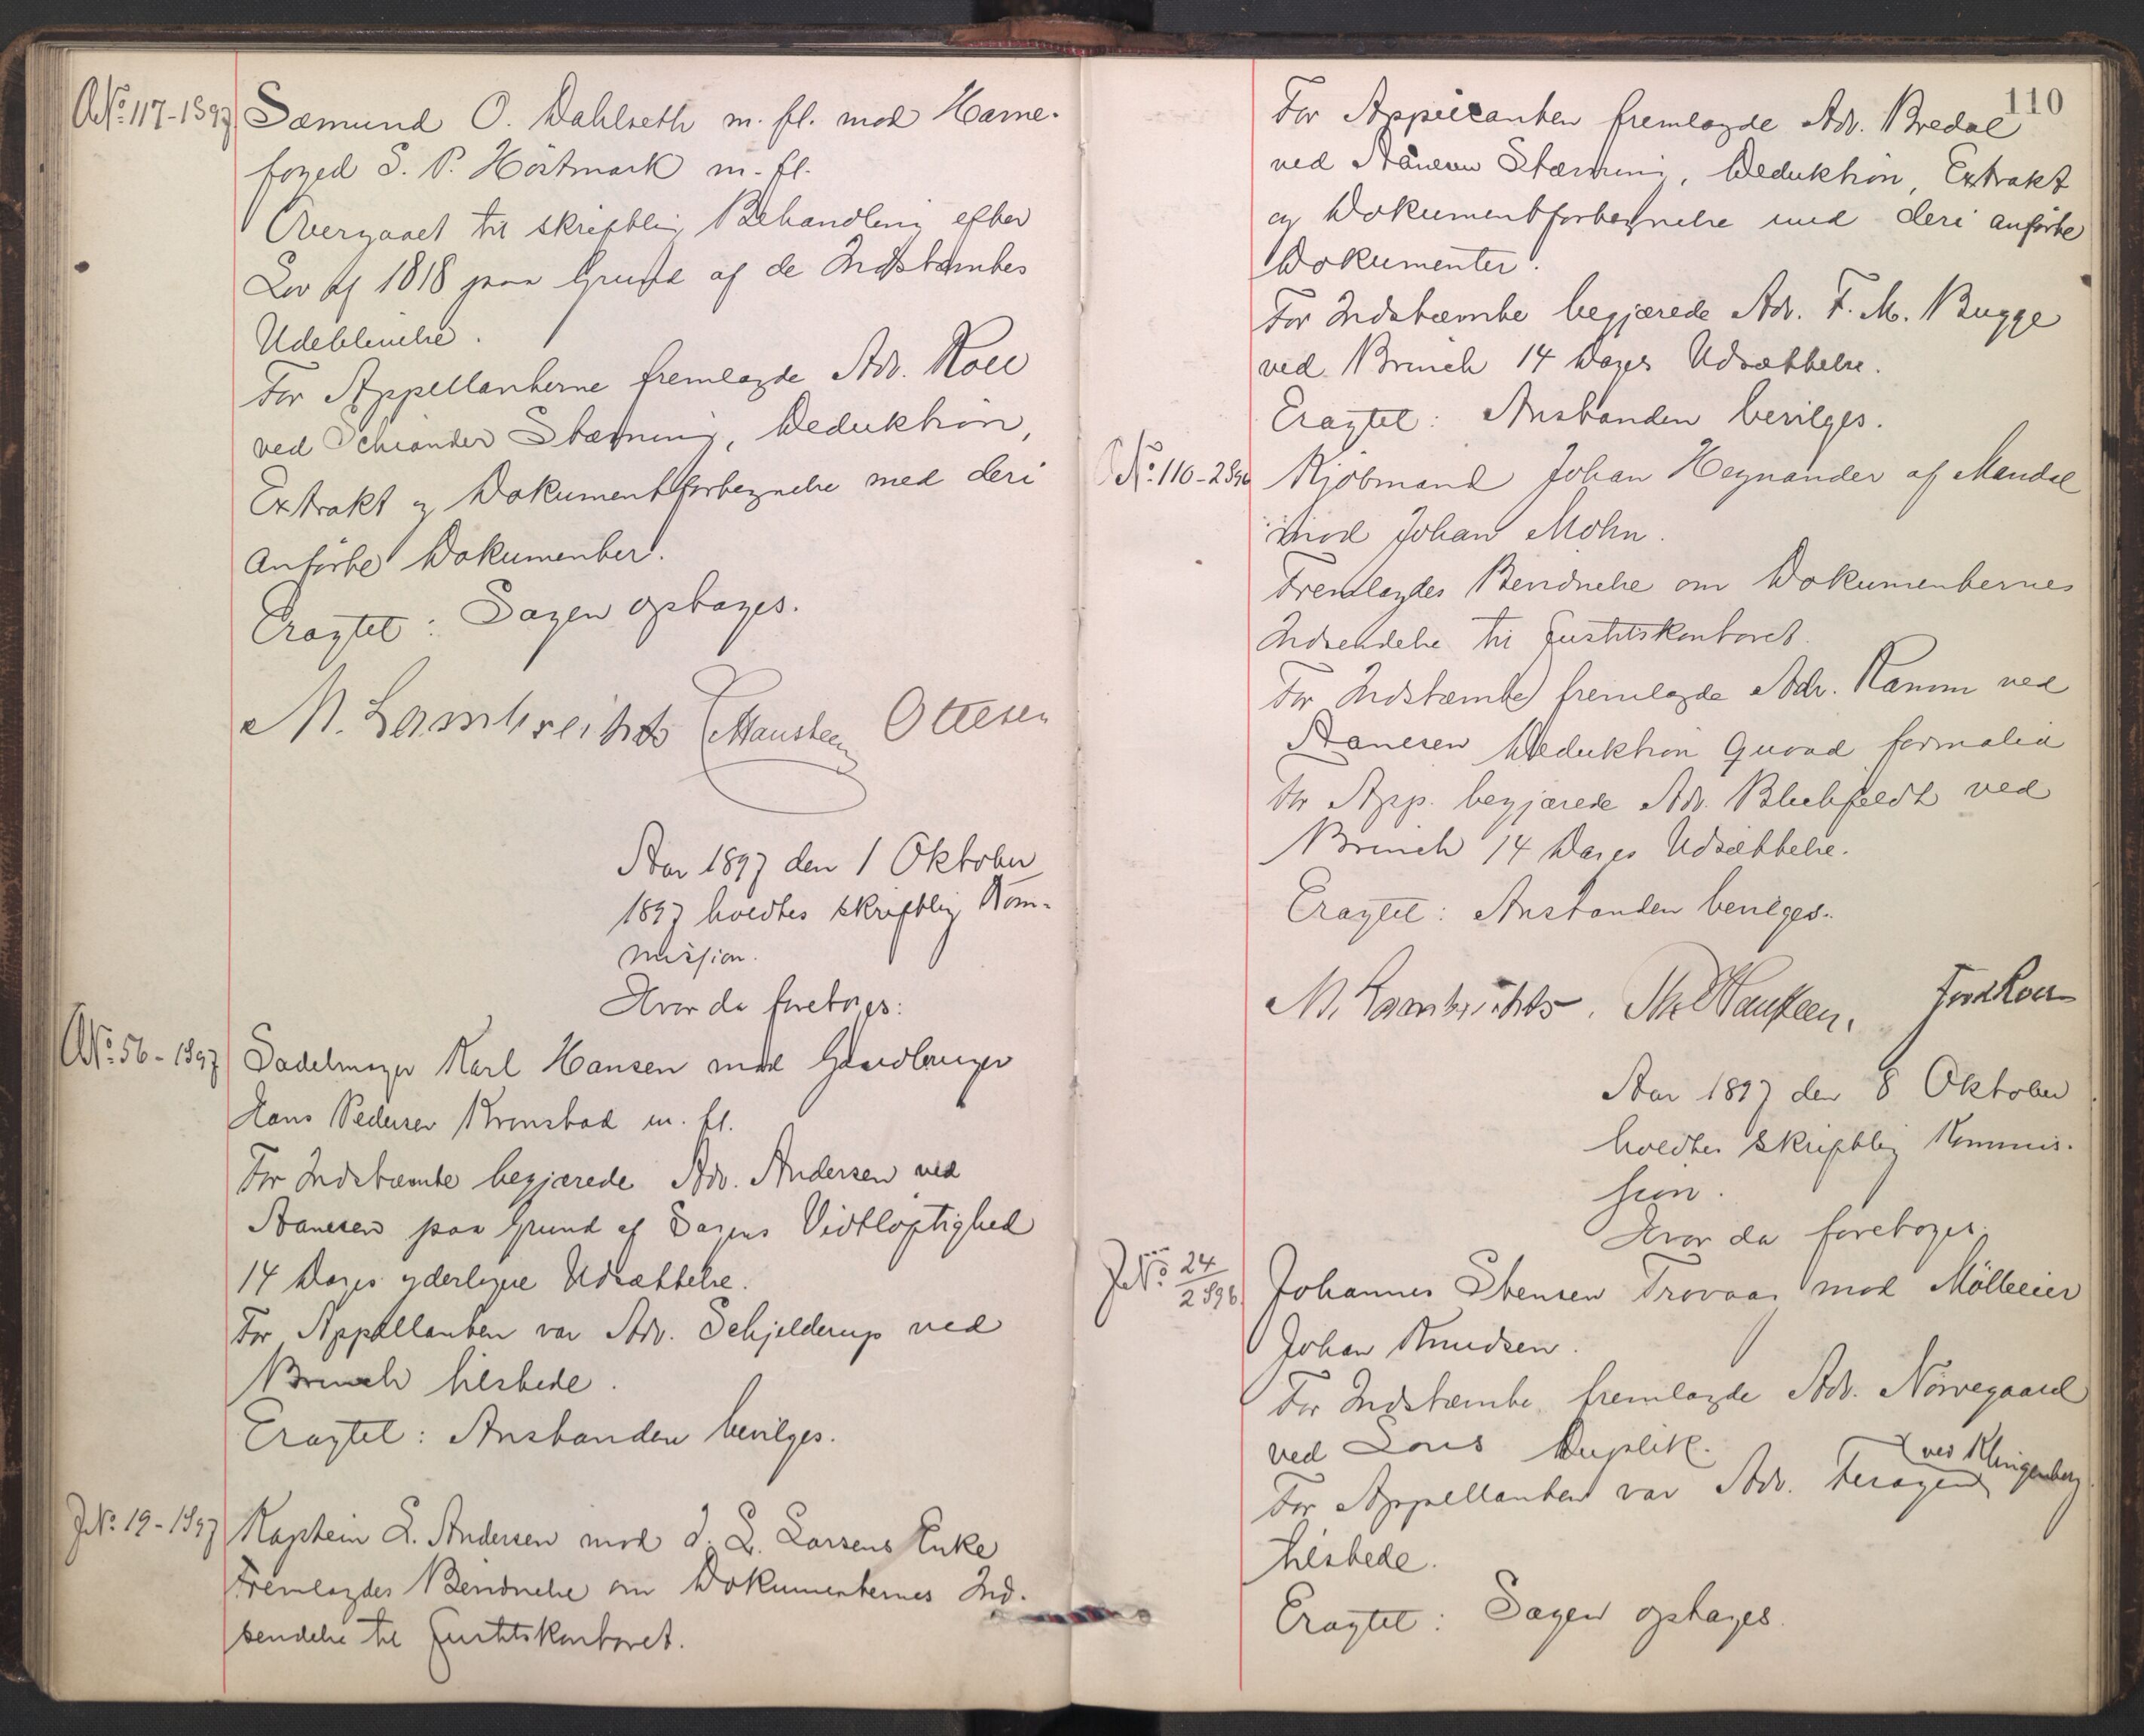 No. 117-1897 Sæmund O. Dahlseth m. fl. mod Havne-
foged S. P. Höstmark m. fl.
Overgaaet til skriftlig Behandling efter
Lov af 1818 paa Grund af de Indstævntes
Udeblivelse.
For Appellanterne fremlagde Adv. Roll
ved Schiander Stævning, Deduktion,
Extrakt og Dokumentfortegnelse med deri
anförte Dokumenter.
Eragtet: Sagen optages.
M. Lambrechts Hansteen Ottesen
Aar 1897 den 1 Oktober
1897 holdtes skriftlig Kom-
mission.
Hvor da foretoges:
No. 56-1897 Sadelmager Karl Hansen mod Gaardbruger
Hans Pedersen Kronstad m. fl.
For Indstævnte begjærede Adv. Andersen ved
Aanesen paa Grund af Sagens Vidtløftighed
14 Dages yderligere Udsættelse.
For Appellanten var Adv. Schjelderup ved
Brinch tilstede.
Eragtet: Anstanden bevilges.
J.No. 19-1897 Kaptein L. Andersen mod J. L. Larsens Enke
Fremlagdes Bevidnelse om Dokumenternes Ind-
sendelse til Justitskontoret.
110
For Appellanten fremlagde Adv. Bredal
ved Aanesen Stævning, Deduktion, Extrakt
og Dokumentfortegnelse med deri anförte
Dokumenter.
For Indstævnte begjærede Adv. F. M. Bugge
ved Brinch 14 Dages Udsættelse.
Eragtet: Anstanden bevilges.
No. 110-2 896 Kjöbmand Johan Heynander af Mandal
mod Johan Mohn.
Fremlagdes Bevidnelse om Dokumenternes
Indsendelse til Justitskontoret.
For Indstævnte fremlagde Adv. Kamm ved
Aanesen Deduktion quoad formalia
For App. begjærede Adv. Blehfeldt ved
Brinch 14 Dages Udsættelse.
Eragtet: Anstanden bevilges.
M. Lambrechts. Hansteen.
Aar 1897 den 8 Oktober
holdtes skriftlig Kommis-
sion.
Hvor da foretoges:
J.No. 24/2 896 Johannes Stensen Trovaag mod Mölleeier
Johan Knudsen.
For Indstævnte fremlagde Adv. Nörregaard
ved Lous Duplik.
For Appellanten var Adv. Feragen ved Klingenberg
tilstede.
Eragtet: Sagen optages.